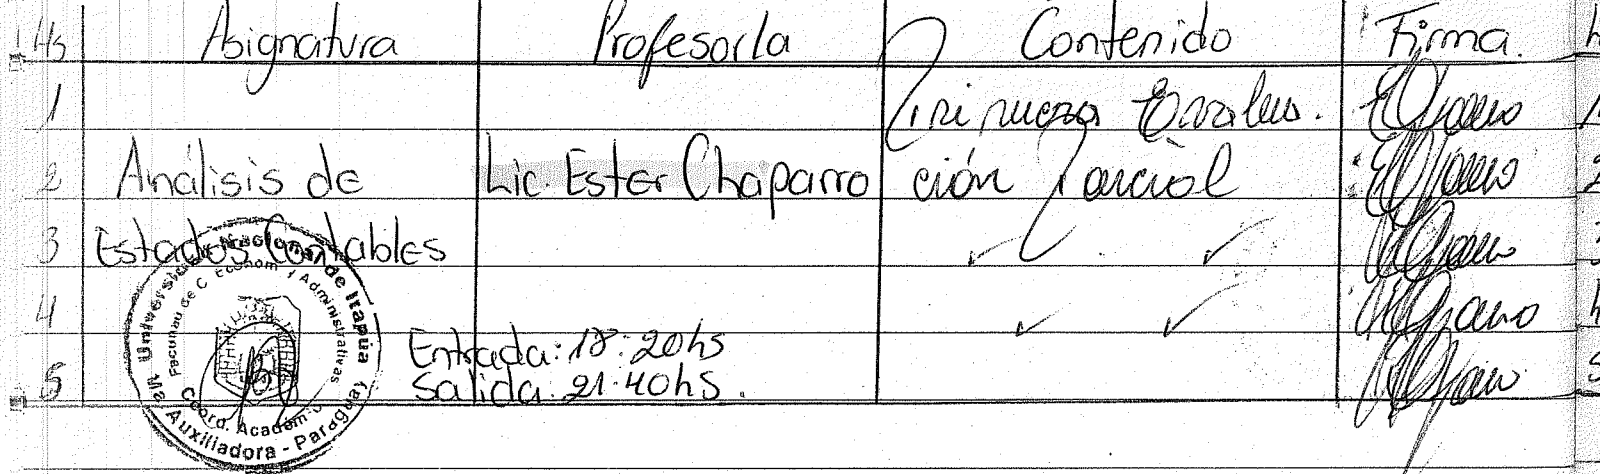 Hs Asignatura Profesor/a Contenido Firma.
1 Primera Evalua.
2 Análisis de Lic. Ester Chaparro ción Parcial
3 Estados Contables ✓ ✓
4 ✓ ✓
Entrada: 17:20hs
5 Salida: 21:40hs.
Universidad Nacional de Itapúa
Facultad de C. Econom. y Administrativas
Coord. Académica
Ma. Auxiliadora - Paraguay